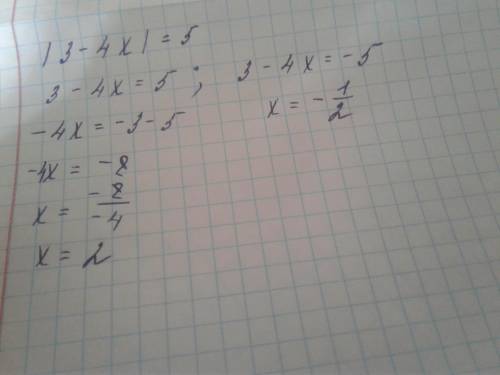 |3-4x|=5
3-4x=5; 3-4x=-5
-4x=-3-5 x=-1/2
-4x=-8
x=-8/-4
x=2